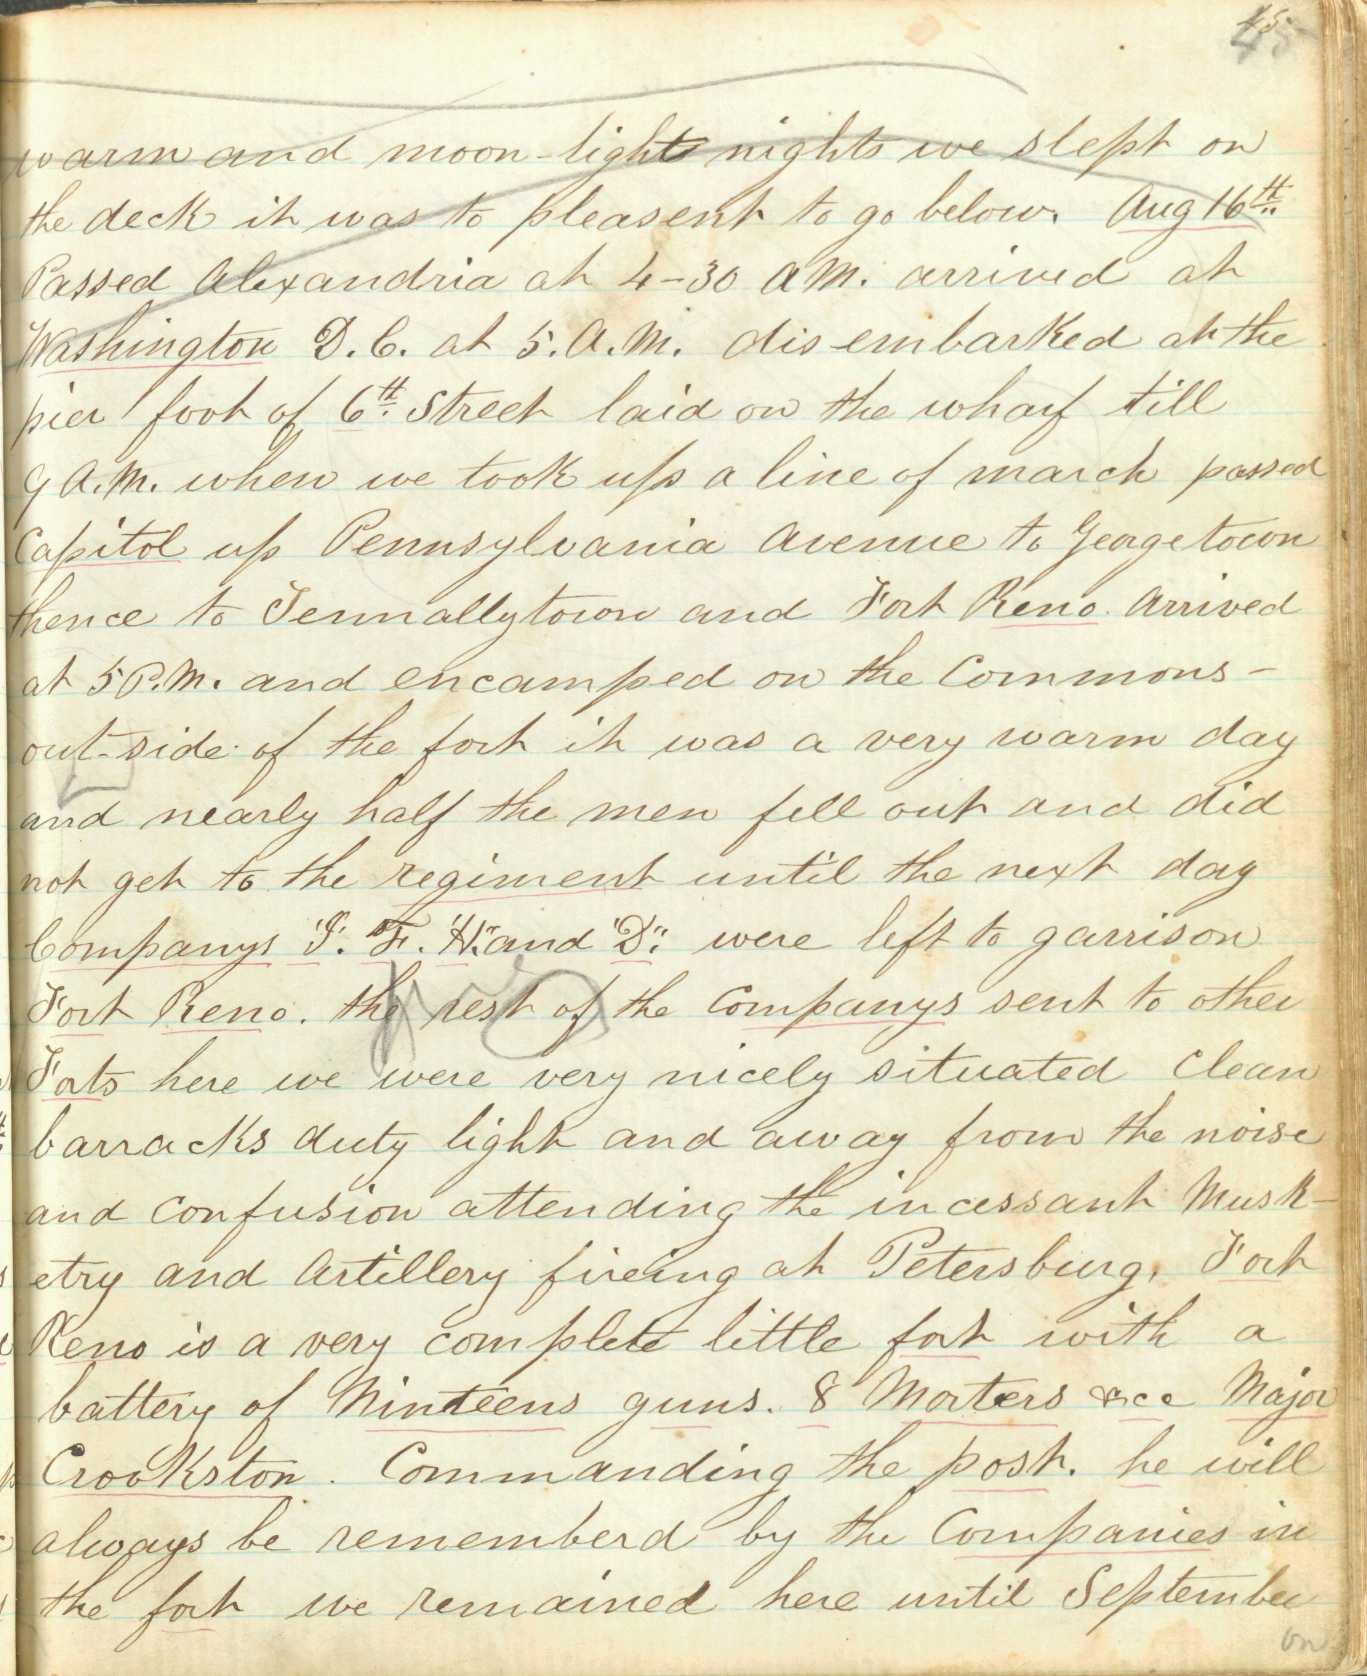 45
warm and moon-light nights we slept on
the deck it was to pleasent to go below. Aug 16th
Passed Alexandria at 4-30 A.M. arrived at
Washington D.C. at 5.A.M. dis-embarked at the
pier foot of 6th Street laid on the wharf till
9 A.M. when we took up a line of march passed
Capitol up Pennsylvania Avenue to Georgetown
thence to Tennallytown and Fort Reno. Arrived
at 5 P.M. and encamped on the Commons-
out-side of the fort it was a very warm day
and nearly half the men fell out and did
not get to the regiment until the next day
Companys "I". "F". "H" and "D". were left to garrison
Fort Reno. the rest of the Companys sent to other
Forts here we were very nicely situated Clean
barracks duty light and away from the noise
and confusion attending the incessant Musk-
etry and Artillery fireing at Petersburg. Fort
Reno is a very complete little fort with a
battery of Ninteens guns. 8 Morters &cc Major
Crookston. Commanding the post. he will
always be rememberd by the Companies in
the fort we remained here until September
on